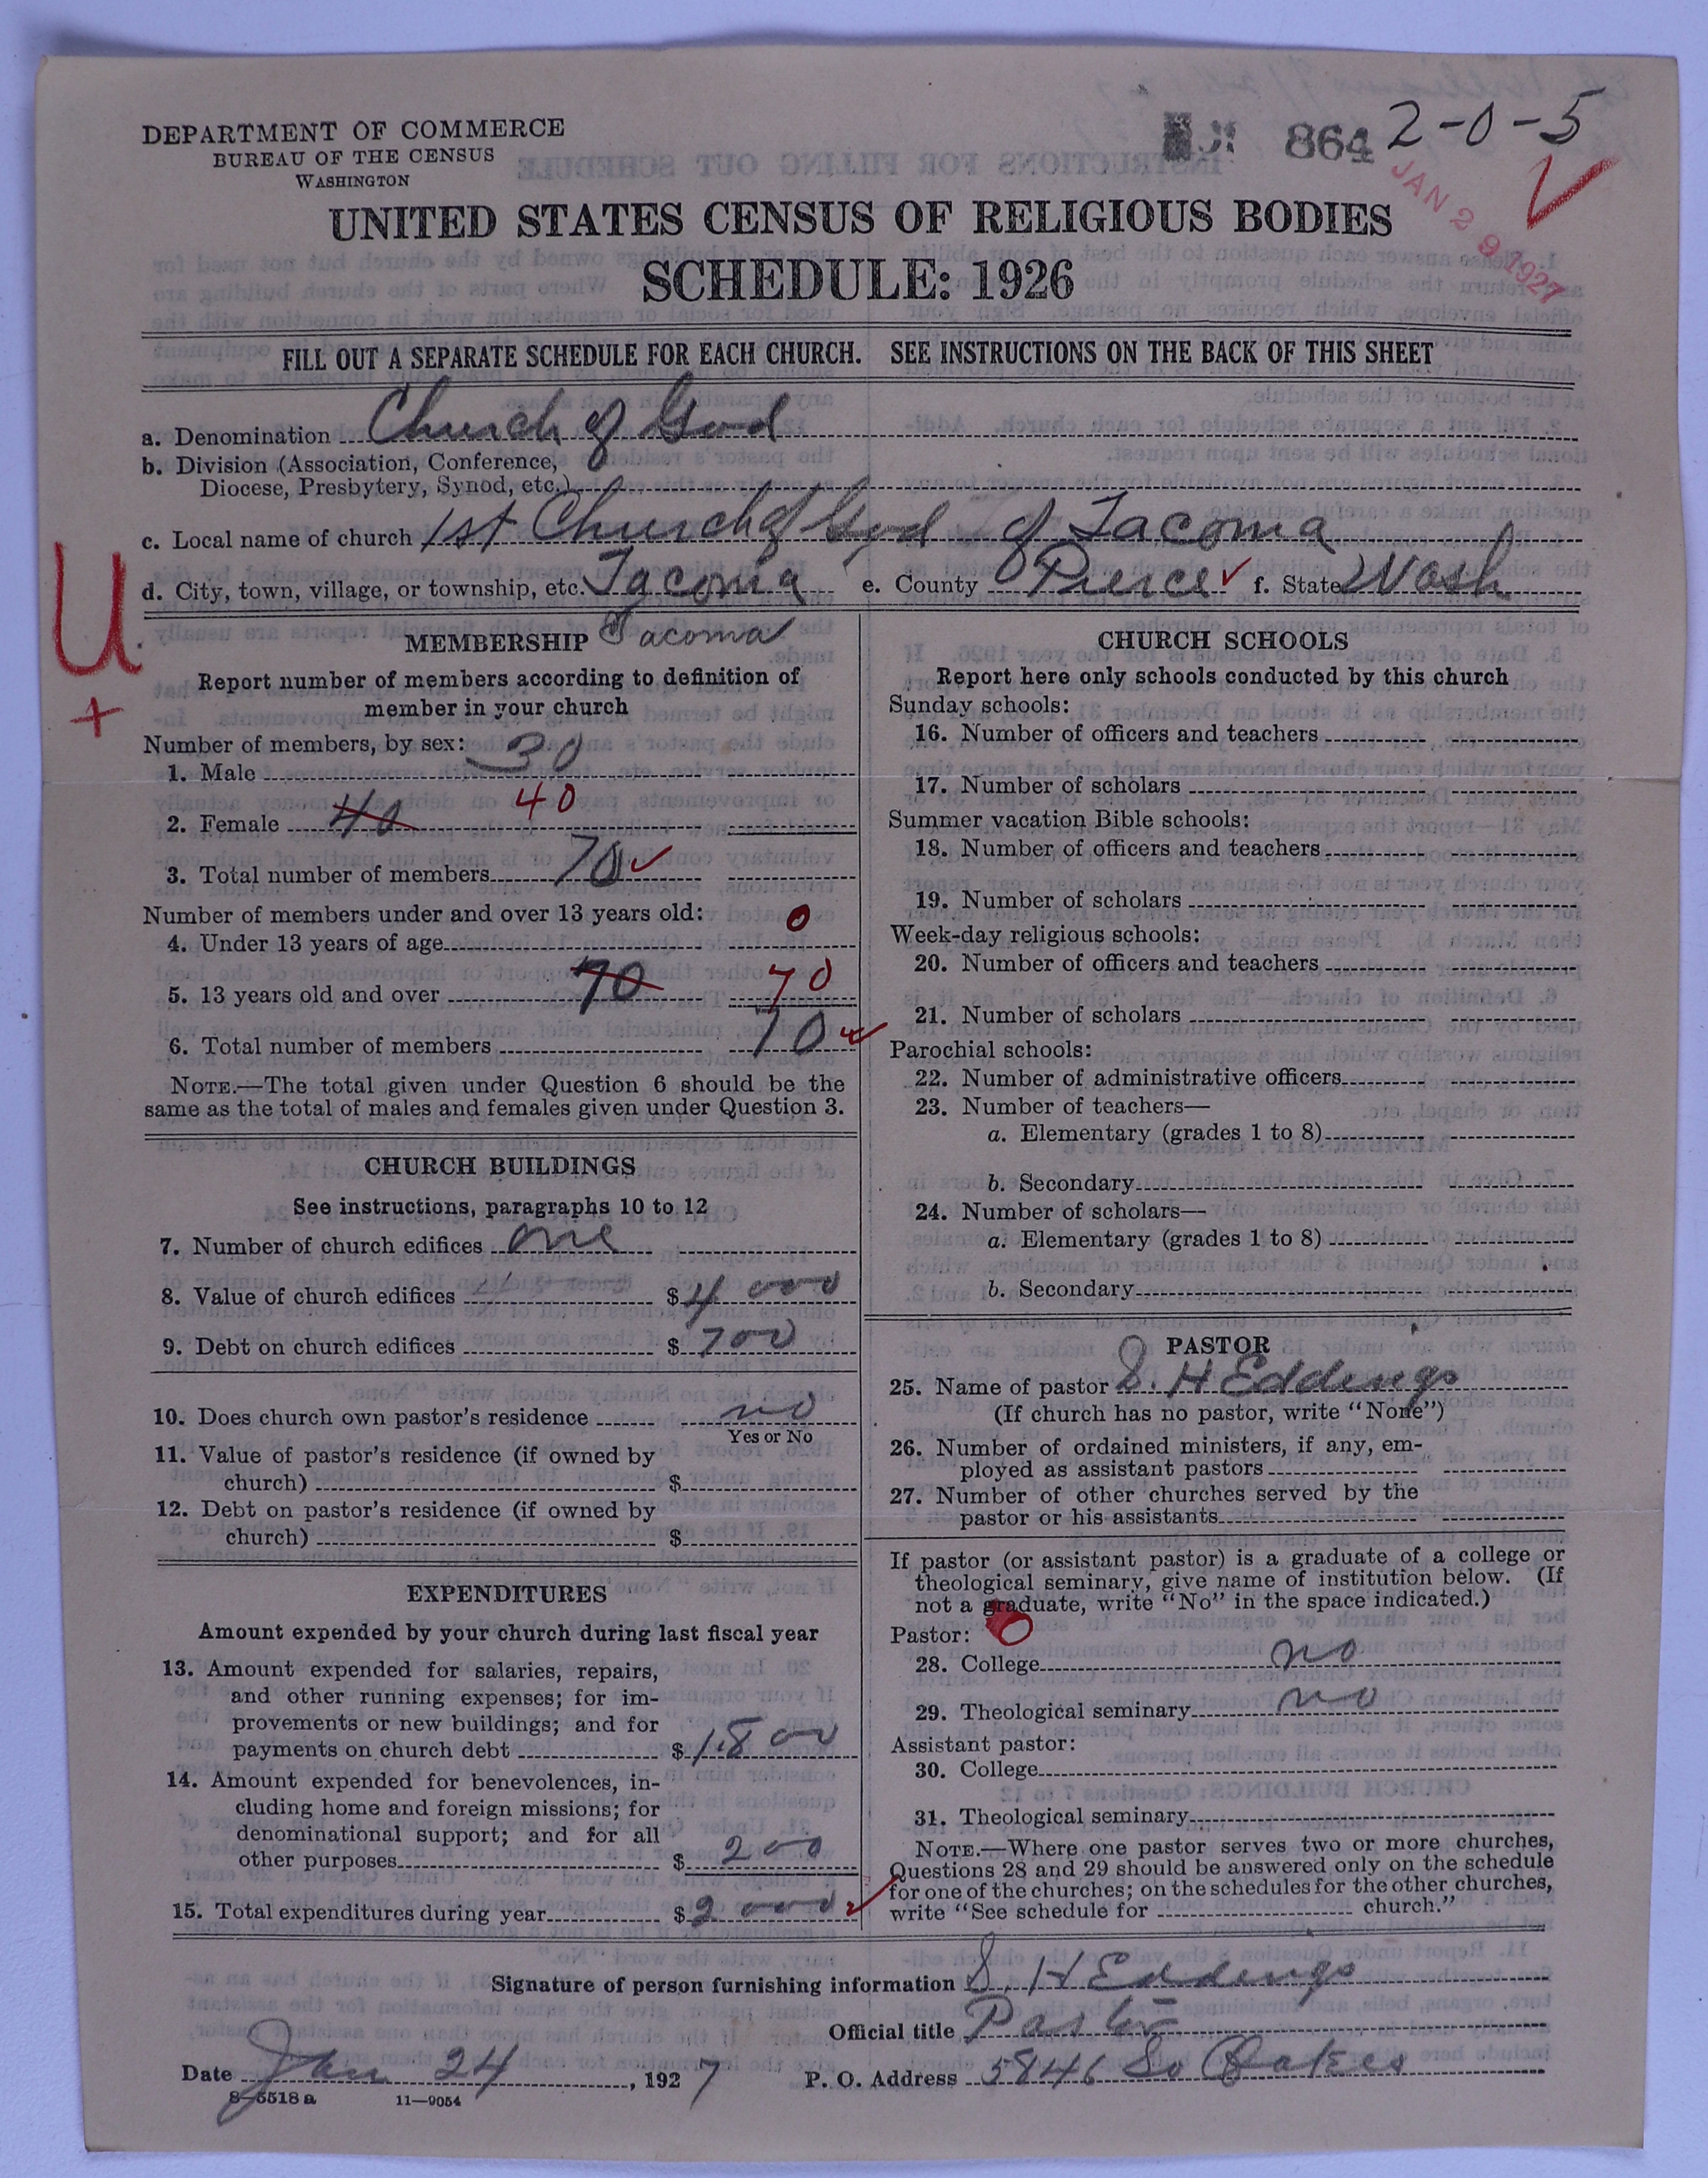 864 2-0-5
JAN 29 1927
DEPARTMENT OF COMMERCE
BUREAU OF THE CENSUS
WASHINGTON
UNITED STATES CENSUS OF RELIGIOUS BODIES
SCHEDULE: 1926
FILL OUT A SEPARATE SCHEDULE FOR EACH CHURCH. SEE INSTRUCTIONS ON THE BACK OF THIS SHEET
a. Denomination Church of God
b. Division (Association, Conference,
Diocese, Presbytery, Synod, etc.)
c. Local name of church 1st Church of God of Tacoma
d. City, town, village, or township, etc. Tacoma e. County Pierce f. State Wash
U
+
MEMBERSHIP Tacoma
Report number of members according to definition of
member in your church
Number of members, by sex:
1. Male 30
2. Female 40 40
3. Total number of members 70
Number of members under and over 13 years old:
4. Under 13 years of age 0
5. 13 years old and over 70 70
6. Total number of members 70
NOTE.—The total given under Question 6 should be the
same as the total of males and females given under Question 3.
CHURCH BUILDINGS
See instructions, paragraphs 10 to 12
7. Number of church edifices one
8. Value of church edifices $4000
9. Debt on church edifices $700
10. Does church own pastor's residence no
Yes or No
11. Value of pastor's residence (if owned by
church) $
12. Debt on pastor's residence (if owned by
church) $
EXPENDITURES
Amount expended by your church during last fiscal year
13. Amount expended for salaries, repairs,
and other running expenses; for im-
provements or new buildings; and for
payments on church debt $1800
14. Amount expended for benevolences, in-
cluding home and foreign missions; for
denominational support; and for all
other purposes $200
15. Total expenditures during year $2000
CHURCH SCHOOLS
Report here only schools conducted by this church
Sunday schools:
16. Number of officers and teachers
17. Number of scholars
Summer vacation Bible schools:
18. Number of officers and teachers
19. Number of scholars
Week-day religious schools:
20. Number of officers and teachers
21. Number of scholars
Parochial schools:
22. Number of administrative officers
23. Number of teachers—
a. Elementary (grades 1 to 8)
b. Secondary
24. Number of scholars—
a. Elementary (grades 1 to 8)
b. Secondary
PASTOR
25. Name of pastor S. H Eddings
(If church has no pastor, write "None")
26. Number of ordained ministers, if any, em-
ployed as assistant pastors
27. Number of other churches served by the
pastor or his assistants
If pastor (or assistant pastor) is a graduate of a college or
theological seminary, give name of institution below. (If
not a graduate, write "No" in the space indicated.)
Pastor:
28. College no
29. Theological seminary no
Assistant pastor:
30. College
31. Theological seminary
NOTE.—Where one pastor serves two or more churches,
Questions 28 and 29 should be answered only on the schedule
for one of the churches; on the schedules for the other churches,
write "See schedule for church."
Signature of person furnishing information S. H Eddings
Official title Pastor
Date Jan 24, 1927 P. O. Address 5846 So Oakes
8-5518 a 11-9054